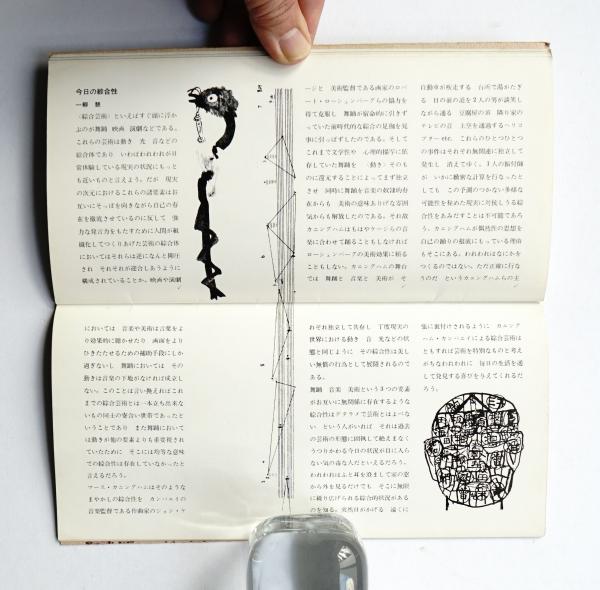 今日の綜合性
一柳 慧
〈綜合芸術〉といえばすぐ頭に浮か
ぶのが舞踊 映画 演劇などである。
これらの芸術は動き 光 音などの
綜合体であり いわばわれわれが日
常体験している現実の状況にもっと
も近いものと言えよう。だが 現実
の次元におけるこれらの諸要素はお
互いにそっぽを向きながら自己の存
在を徹底させているのに反して 強
力な発言力をもたすために人間が組
織化してつくりあげた芸術の綜合体
においてはそれらは逆になんと隣庄
され それぞれが迎合しあうように
構成されていることか。映画や演劇
においては 音楽や美術は言葉をよ
り効果的に聞かせたり 画面をより
ひきたたせるための補助手段にしか
過ぎないし 舞踊においては その
動きは音楽の下地がなければ成立し
ない。このことは言い換えればこれ
までの綜合芸術とは一本立ち出来な
いもの同士の寄合い世帯であったと
いうことであり また舞踊において
は動きが他の要素よりも重要視され
ていたために そこには均等な意味
での綜合性は存在していなかったと
言えるだろう。
マース・カニングハムはそのような
まやかしの綜合性を カンパニイの
音楽監督である作曲家のジョン・ケ
ージと 美術監督である画家のロバ
ート・ローシェンバーグらの協力を
得て克服し 舞踊が宿命的に引きず
っていた前時代的な綜合の足枷を見
事に引っぱずしたのである。そして
これまで文学性や 心理的描写に依
存していた舞踊を 〈動き〉そのもの
に還元することによってまず独立
させ 同時に舞踊を音楽の奴隷的存
在からも 美術の意味ありげな雰囲
気からも解放したのである。それ故
カニングハムはもはやケージらの音
楽に合わせて踊ることもしなければ
ローシェンバーグの美術効果に頼る
こともしない。カニングハムの舞台
では 舞踊と 音楽と 美術が そ
れぞれ独立して共存し 丁度現実の
世界における動き 音 光などの状
態と同じように その綜合性は美し
い無償の行為として展開されるので
ある。
舞踊 音楽 美術という3つの要素
がお互いに無関係に存在するような
綜合性はデタラメで芸術とはよべな
い という人がいれば それは過去
の芸術の形態に固執して絶えまなく
うつりかわる今日の状況が目に入ら
ない気の毒な人だといえるだろう。
われわれはふと耳を澄まして家の窓
から外を見るだけでも そこに無限
に繰り広げられる綜合的状況がある
のを知る。突然日がかげる 遠くに
自動車が疾走する 台所で湯がたぎ
る 目の前の道を2人の男が談笑し
ながら通る 豆腐屋の笛 隣り家の
テレビの音 上空を通過するヘリコ
プター etc. これらのひとつひとつ
の事件はそれぞれ無関連に独立して
発生し 消えてゆく。3人の振付師
が いかに緻密な計算を行なったと
しても この予測のつかない多様な
可能性を秘めた現実に対抗しうる綜
合性をあみだすことは不可能であろ
う。カニングハムが偶然性の思想を
自己の踊りの根底にもっている理由
もそこにある。われわれはなにかを
つくるのではない。ただ正確に行な
うのだ というカニングハムらの主
張に裏付けされるように カニング
ハム・カンパニイによる綜合芸術は
ともすれば芸術を特別なものと考え
がちなわれわれに 毎日の生活を通
して発見する喜びを与えてくれるだ
ろう。